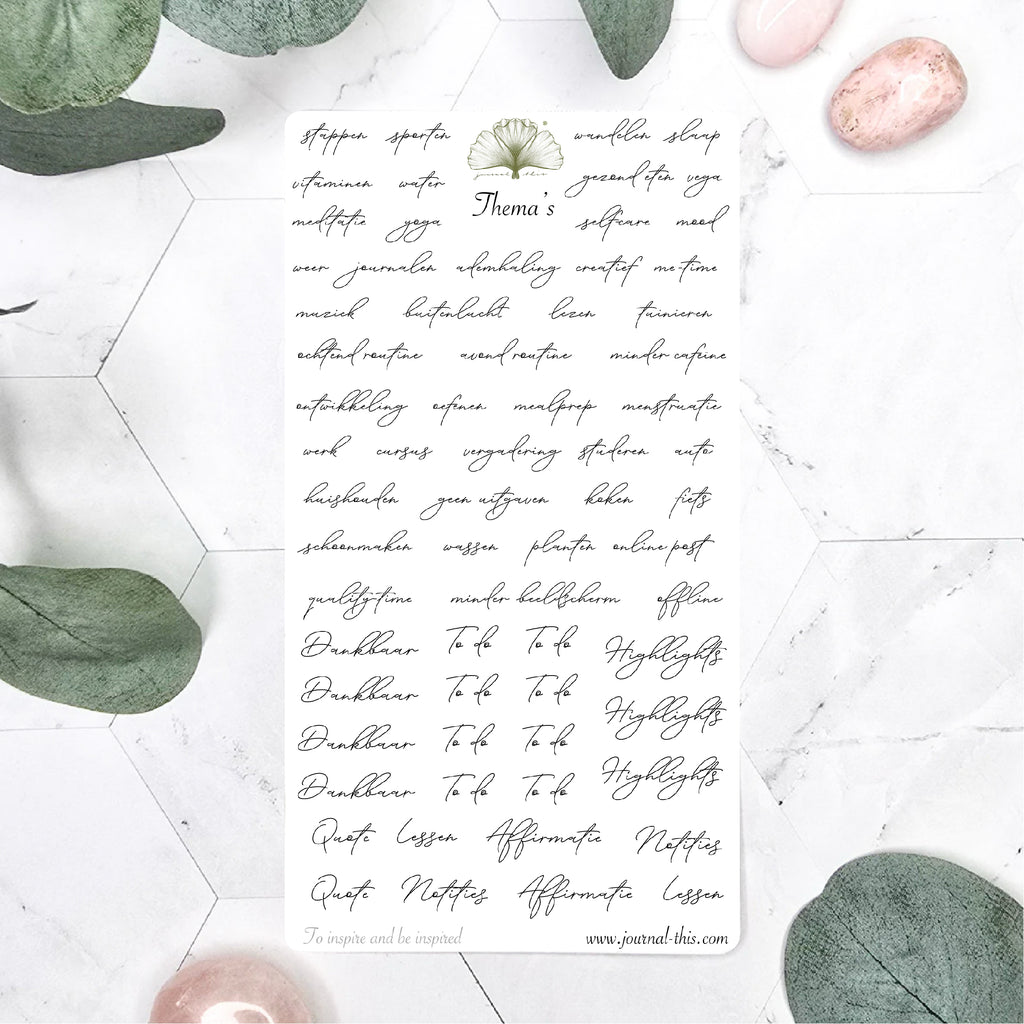 stappen sporten wandelen slaap
journal this
vitaminen water gezond eten vega
Thema's
meditatie yoga selfcare mood
weer journalen ademhaling creatief me-time
muziek buitenlucht lezen tuinieren
ochtend routine avond routine minder cafeine
ontwikkeling oefenen mealprep menstruatie
werk cursus vergadering studeren auto
huishouden geen uitgaven koken fiets
schoonmaken wassen planten online post
quality-time minder beeldscherm offline
Dankbaar To do To do Highlights
Dankbaar To do To do Highlights
Dankbaar To do To do Highlights
Dankbaar To do To do
Quote Lessen Affirmatie Notities
Quote Notities Affirmatie Lessen
To inspire and be inspired www.journal-this.com